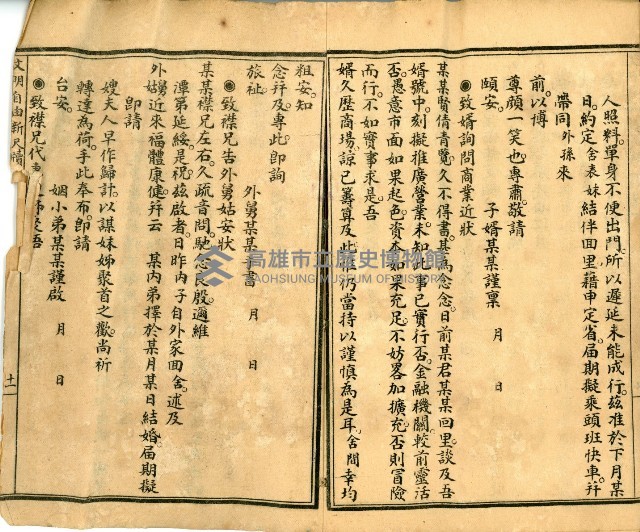 人照料單身不便出門所以遲延未能成行茲准於下月某
日約定舍表妹結伴回里藉申定省屆期擬乘頭班快車幷
帶同外孫來
前以博
尊顏一笑也專肅敬請
頤安
子婿某某謹稟 月 日
◉致婿詢問商業近狀
某某賢倩青覽久不得書甚為念念日前某君某某回里談及吾
婿號中刻擬推廣營業未知此事已實行否金融機關較前靈活
否愚意市面如果起色資本如果充足不妨畧加擴充否則冒險
而行不如實事求是吾
婿久歷商場諒已籌算及此唯仍當持以謹慎為是耳舍間幸均
粗安知
念幷及專此卽詢
旅祉
外舅某某手書 月 日
◉致襟兄告外舅姑安狀
某某襟兄左右久疏音問馳念良殷遍維
潭第延綏是祝茲啟者日昨內子自外家回舍述及
外舅姑近來福體康健幷云 某內弟擇於某月某日結婚屆期擬
卽請
嫂夫人早作歸計以謀妹姊聚首之歡尚祈
轉達為荷手此奉布卽請
台安
姻小弟某某謹啟 月 日
◉致襟兄代
文明自由新尺牘
十一
高雄市立歷史博物館
KAOHSIUNG MUSEUM OF HISTORY